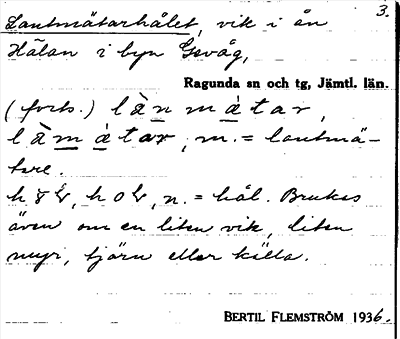 3.
Lantmätarhålet, vik i ån
Hälan i byn Gevåg,
Ragunda sn och tg, Jämtl. län.
(forts.) làn màtar,
làm àtar, m. = lantmä-
tare.
h, n. = hål. Brukas
även om en liten vik, liten
myr, tjärn eller källa.
BERTIL FLEMSTRÖM 1936.